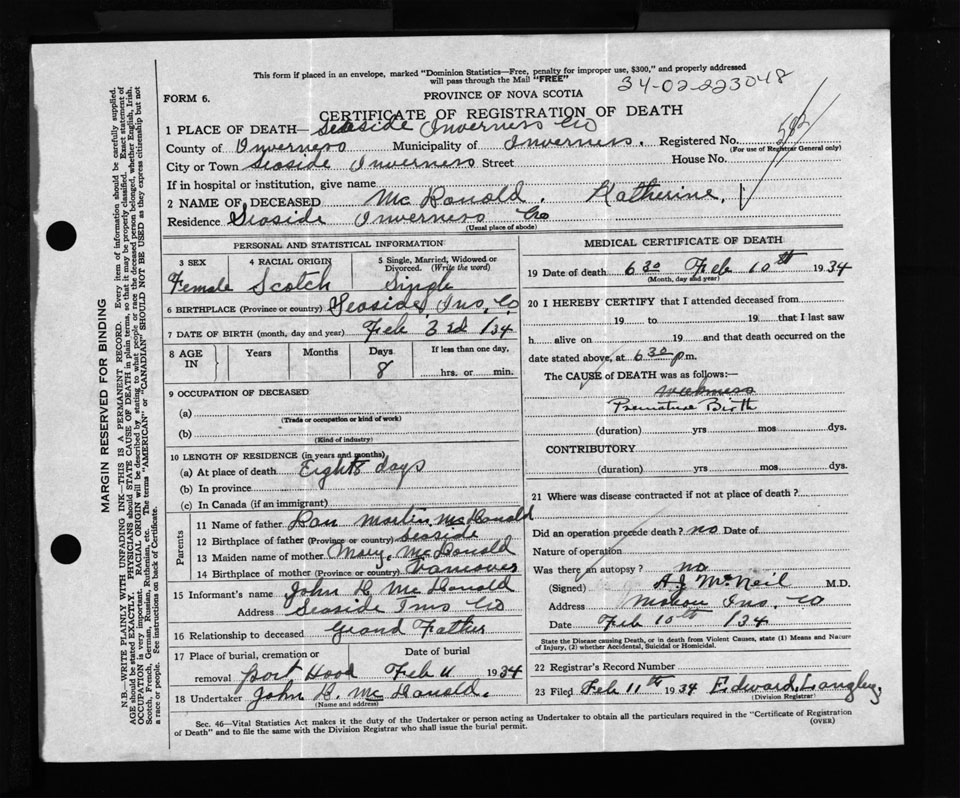 This form if placed in an envelope, marked "Dominion Statistics—Free, penalty for improper use, $300," and properly addressed
will pass through the Mail "FREE"
34-02-223048
FORM 6.
PROVINCE OF NOVA SCOTIA
CERTIFICATE OF REGISTRATION OF DEATH
1 PLACE OF DEATH— Seaside Inverness Co
County of Inverness Municipality of Inverness. Registered No.
(For use of Registrar General only)
City or Town Seaside Inverness Street House No.
If in hospital or institution, give name
2 NAME OF DECEASED McDonald. Katherine,
Residence Seaside Inverness Co
(Usual place of abode)
PERSONAL AND STATISTICAL INFORMATION
3 SEX 4 RACIAL ORIGIN 5 Single, Married, Widowed or
Divorced. (Write the word)
Female Scotch Single
6 BIRTHPLACE (Province or country) Seaside, Inv. Co
7 DATE OF BIRTH (month, day and year) Feb 3rd /34
8 AGE IN Years Months Days If less than one day,
8 hrs. or min.
9 OCCUPATION OF DECEASED
(a)
(Trade or occupation or kind of work)
(b)
(Kind of industry)
10 LENGTH OF RESIDENCE (in years and months)
(a) At place of death Eight days
(b) In province
(c) In Canada (if an immigrant)
Parents
11 Name of father Dan Martin McDonald
12 Birthplace of father (Province or country) Seaside
13 Maiden name of mother Mary, McDonald
14 Birthplace of mother (Province or country)
15 Informant's name John R McDonald
Address Seaside Inv Co
16 Relationship to deceased Grand Father
17 Place of burial, cremation or Date of burial
removal Port Hood Feb 11 1934
18 Undertaker John R. McDonald.
(Name and address)
MEDICAL CERTIFICATE OF DEATH
19 Date of death 6 30 Feb 10th 1934
(Month, day and year)
20 I HEREBY CERTIFY that I attended deceased from
19 to 19 that I last saw
h alive on 19 and that death occurred on the
date stated above, at 6 30 p m.
The CAUSE of DEATH was as follows:—
weakness
Premature Birth
(duration) yrs mos dys.
CONTRIBUTORY
(duration) yrs mos dys.
21 Where was disease contracted if not at place of death?
Did an operation precede death? no Date of
Nature of operation
Was there an autopsy? no
(Signed) A J McNeil M.D.
Address Mabou Inv. Co
Date Feb 10th /34
State the Disease causing Death, or in death from Violent Causes, state (1) Means and Nature
of Injury, (2) whether Accidental, Suicidal or Homicidal.
22 Registrar's Record Number
23 Filed Feb 11th 1934 Edward Langley
(Division Registrar)
Sec. 46—Vital Statistics Act makes it the duty of the Undertaker or person acting as Undertaker to obtain all the particulars required in the "Certificate of Registration
of Death" and to file the same with the Division Registrar who shall issue the burial permit. (OVER)
MARGIN RESERVED FOR BINDING
N.B.—WRITE PLAINLY WITH UNFADING INK—THIS IS A PERMANENT RECORD. Every item of information should be carefully supplied.
AGE should be stated EXACTLY. PHYSICIANS should STATE CAUSE OF DEATH in plain terms, so that it may be properly classified. Exact statement of
OCCUPATION is very important. RACIAL ORIGIN will be described by stating to what people or race the deceased person belonged, whether English, Irish,
Scotch, French, German, Russian, Ruthenian, etc. The terms "AMERICAN" or "CANADIAN" SHOULD NOT BE USED as they express citizenship but not
a race or people. See instructions on back of Certificate.